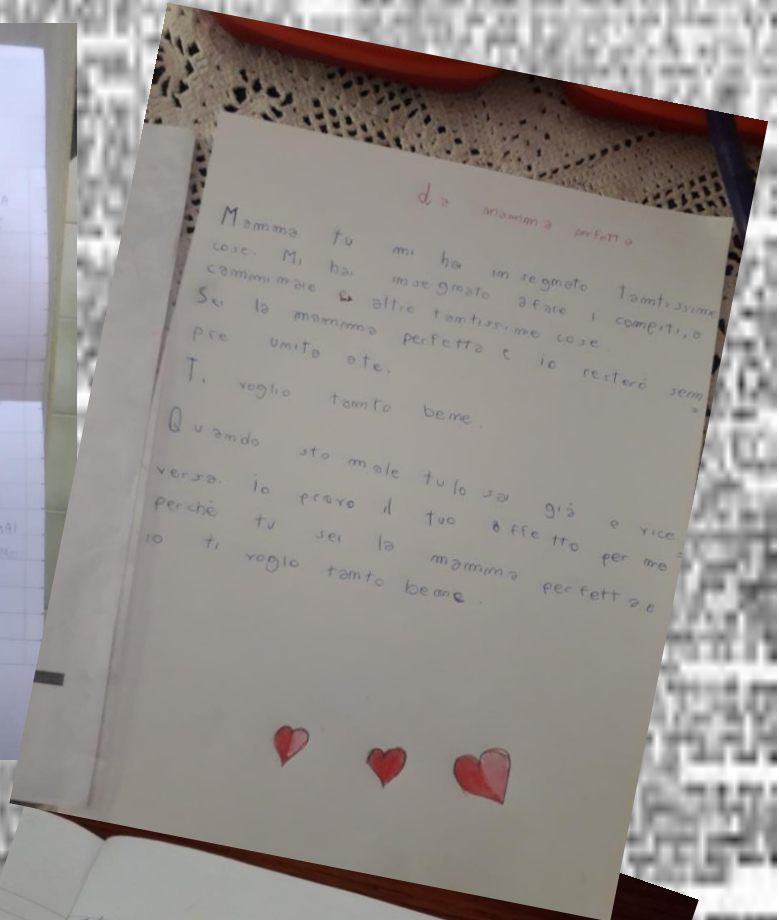 da mamma perfetta
Mamma tu mi hai insegnato tantissime
cose. Mi hai insegnato afare i compiti, a
camminare e altre tantissime cose
Sei la mamma perfetta e io resteró sem
pre unito ate.
Ti voglio tanto bene.
Quando sto male tu lo sai già e vice
versa. io provo il tuo affetto per me
perchè tu sei la mamma perfetta e
io ti voglio tanto bene.